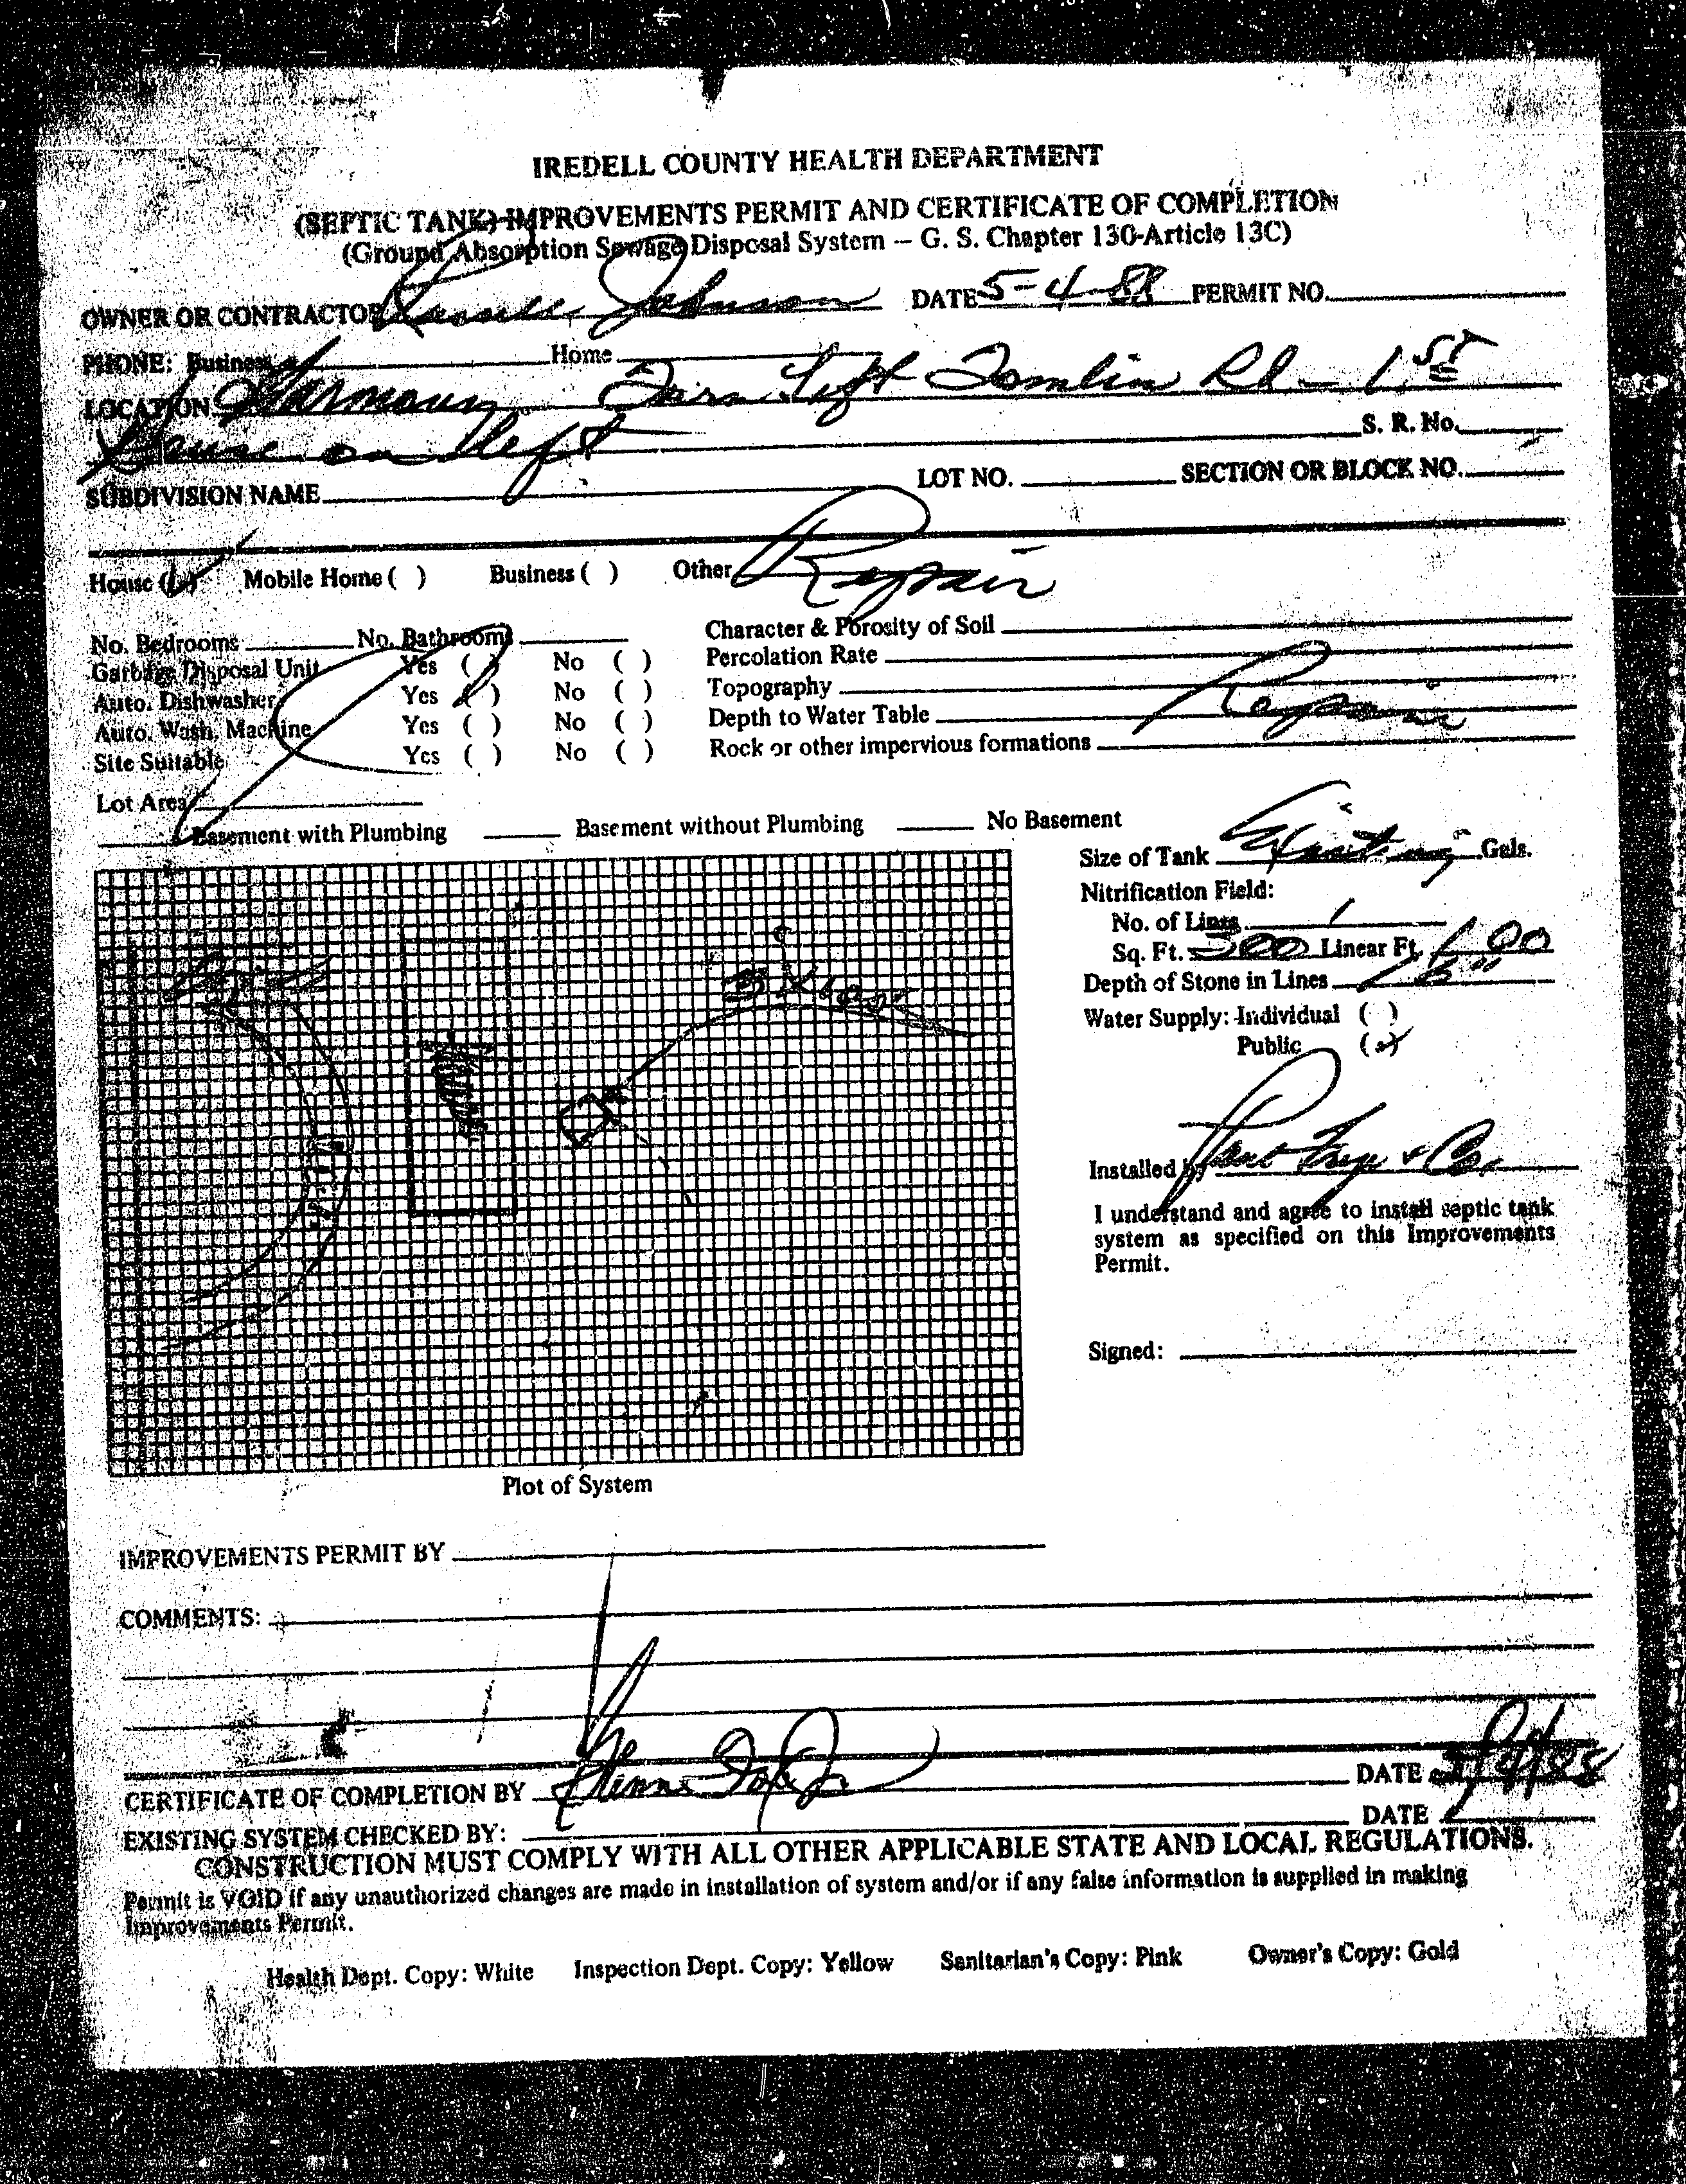 IREDELL COUNTY HEALTH DEPARTMENT
(SEPTIC TANK) IMPROVEMENTS PERMIT AND CERTIFICATE OF COMPLETION
(Ground Absorption Sewage Disposal System – G. S. Chapter 130-Article 13C)
OWNER OR CONTRACTOR Johnson DATE 5-4-88 PERMIT NO.
PHONE: Business Home
LOCATION Harmony Turn Left Tomlin Rd - 1st
house on left S. R. No.
SUBDIVISION NAME LOT NO. SECTION OR BLOCK NO.
House (✓) Mobile Home ( ) Business ( ) Other Repair
No. Bedrooms No. Bathrooms Character & Porosity of Soil
Garbage Disposal Unit Yes ( ) No ( ) Percolation Rate
Auto. Dishwasher Yes ( ) No ( ) Topography
Auto. Wash. Machine Yes ( ) No ( ) Depth to Water Table Repair
Site Suitable Yes ( ) No ( ) Rock or other impervious formations
Lot Area
Basement with Plumbing Basement without Plumbing No Basement
Size of Tank Existing Gals.
Nitrification Field:
No. of Lines 1
Sq. Ft. 300 Linear Ft. 100
Depth of Stone in Lines
Water Supply: Individual ( )
Public (✓)
Installed by & Co.
I understand and agree to install septic tank
system as specified on this Improvements
Permit.
Signed:
Plot of System
IMPROVEMENTS PERMIT BY
COMMENTS:
CERTIFICATE OF COMPLETION BY DATE 5/4/88
EXISTING SYSTEM CHECKED BY: DATE
CONSTRUCTION MUST COMPLY WITH ALL OTHER APPLICABLE STATE AND LOCAL REGULATIONS.
Permit is VOID if any unauthorized changes are made in installation of system and/or if any false information is supplied in making
Improvements Permit.
Health Dept. Copy: White Inspection Dept. Copy: Yellow Sanitarian's Copy: Pink Owner's Copy: Gold